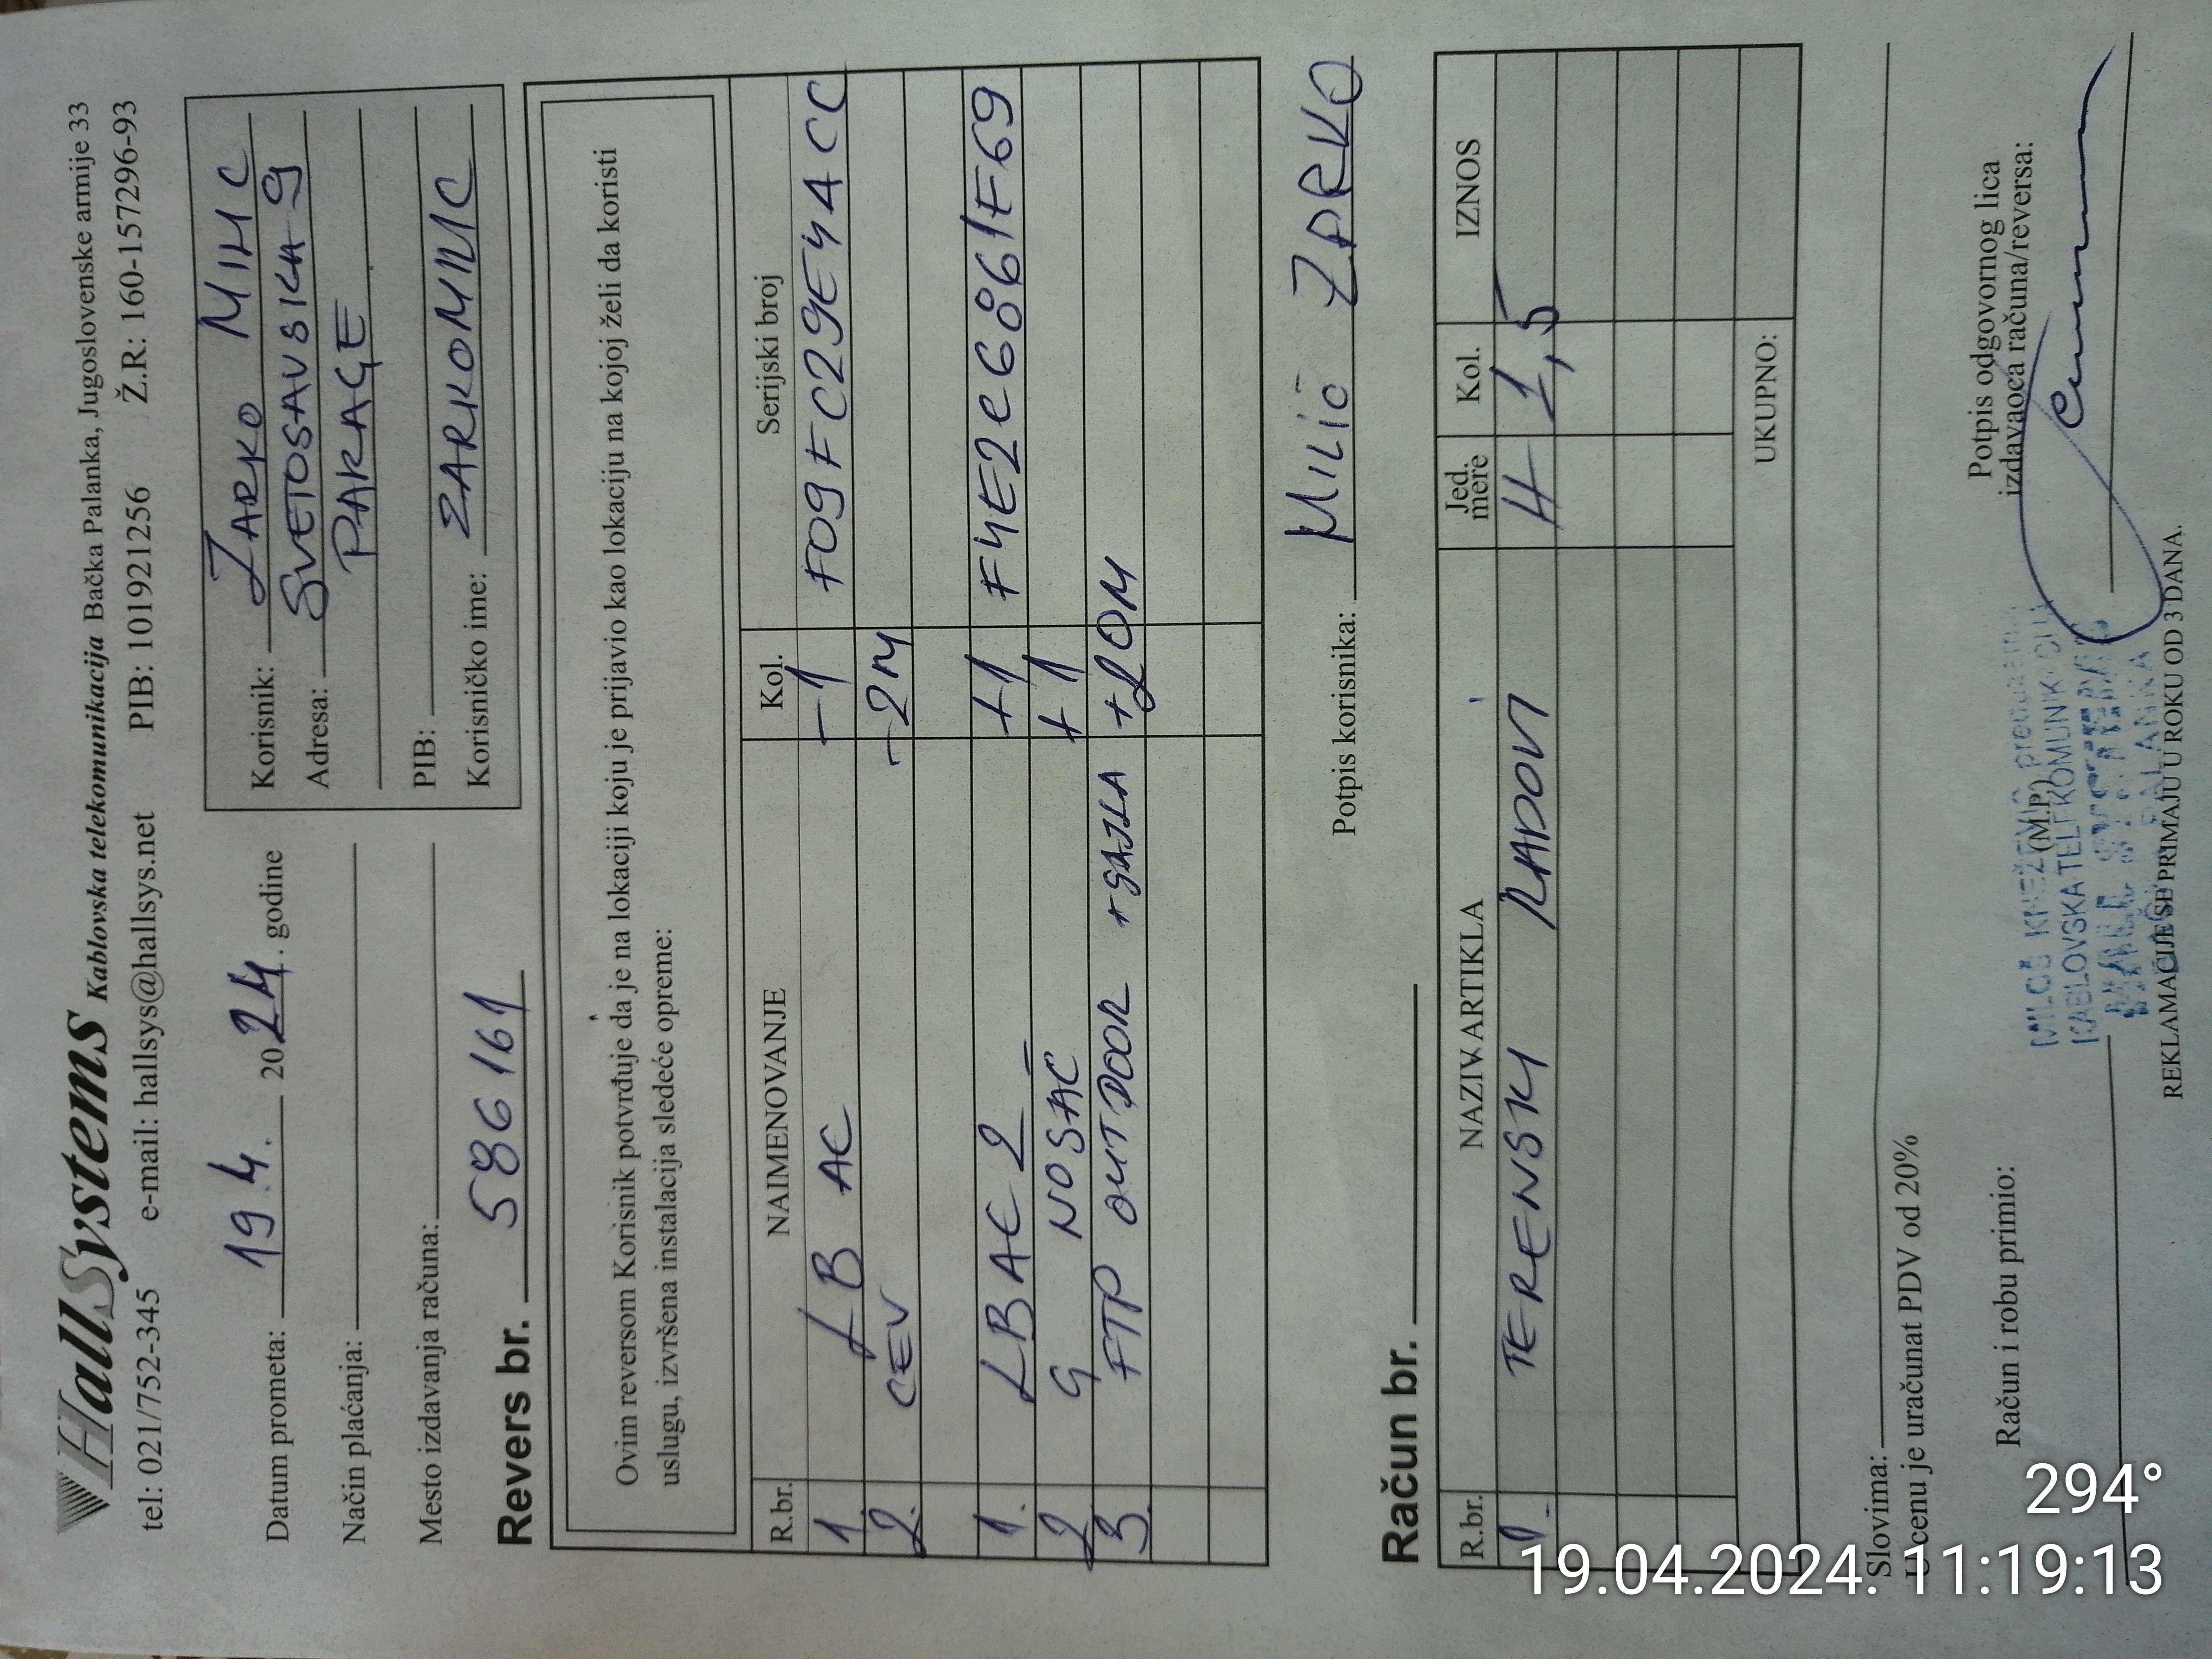 HallSystems Kablovska telekomunikacija Bačka Palanka, Jugoslovenske armije 33
tel: 021/752-345 e-mail: hallsys@hallsys.net PIB: 101921256 Ž.R: 160-157296-93
Datum prometa: 19.4. 2024. godine
Način plaćanja:
Mesto izdavanja računa:
Korisnik: ŽARKO MILIĆ
Adresa: SVETOSAVSKA 9
PARAGE
PIB:
Korisničko ime: ZARKOMILIC
Revers br. 586161
Ovim reversom Korisnik potvrđuje da je na lokaciji koju je prijavio kao lokaciju na kojoj želi da koristi
uslugu, izvršena instalacija sledeće opreme:
R.br. NAIMENOVANJE Kol. Serijski broj
1 LB AC -1 F09FC29E44CC
2. CEV -2M
1. LBAC 2 +1 F4E2C6861F69
2 G NOSAČ +1
3. FTP OUTDOOR + GAJLA +20M
Potpis korisnika: MILIĆ ŽARKO
Račun br.
R.br. NAZIV ARTIKLA Jed. mere Kol. IZNOS
1. TERENSKI RADOVI H 1,5
UKUPNO:
Slovima:
U cenu je uračunat PDV od 20%
Račun i robu primio:
(M.P.)
Potpis odgovornog lica
izdavaoca računa/reversa:
MILOŠ KNEŽEVIĆ
KABLOVSKA TELEKOMUNIKACIJA
HALL SYSTEMS
REKLAMACIJE SE PRIMAJU U ROKU OD 3 DANA.
294°
19.04.2024. 11:19:13